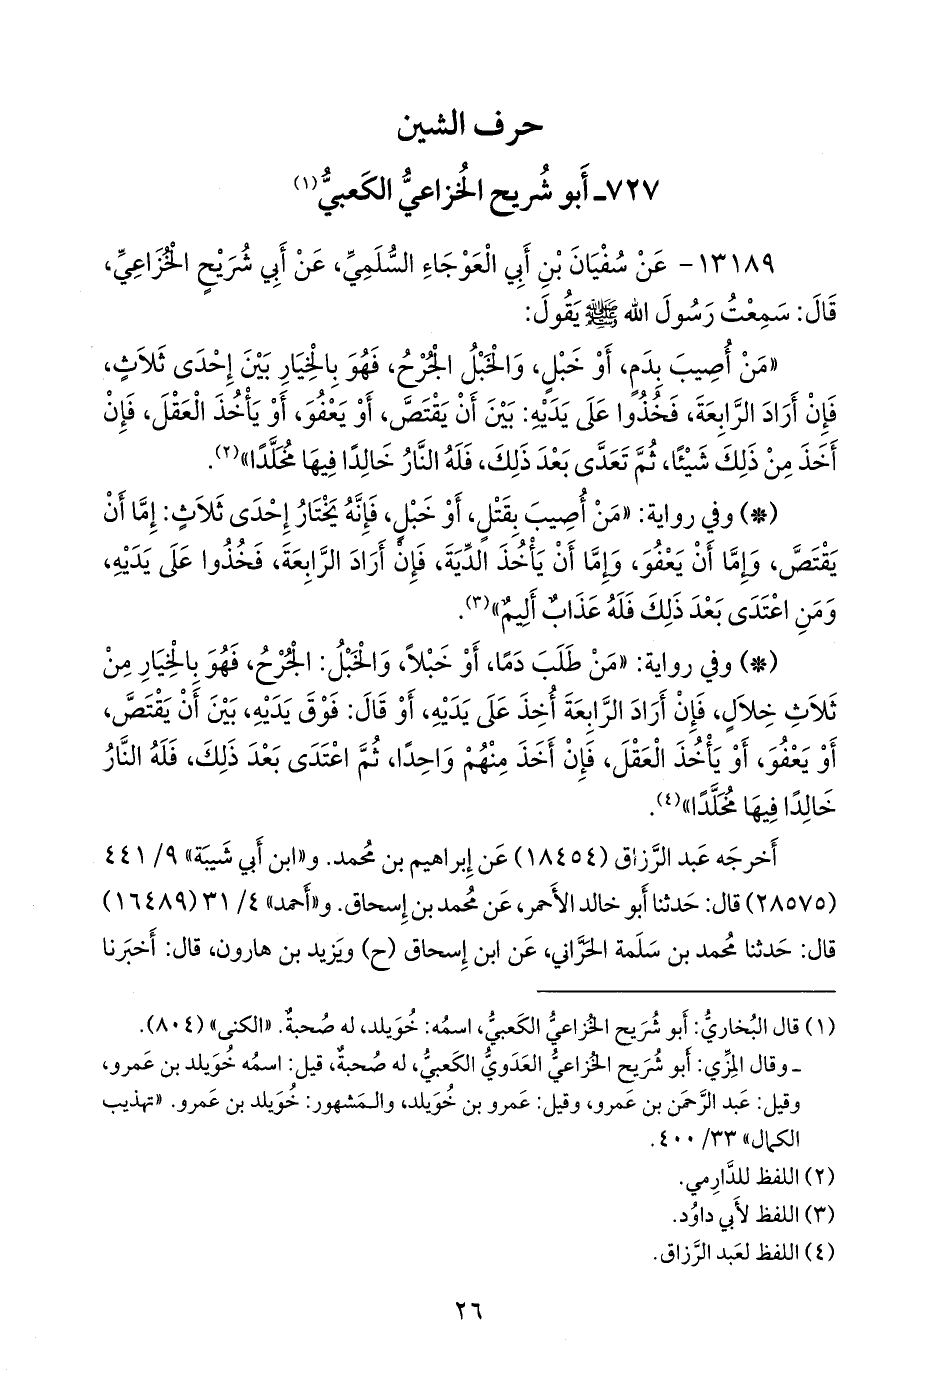 حرف الشين
٧٢٧ـ أَبو شُريح الخُزاعيُّ الكَعبيُّ(١)
١٣١٨٩ - عَنْ سُفْيَانَ بْنِ أَبِي الْعَوْجَاءِ السُّلَمِيِّ، عَنْ أَبِي شُرَيْحٍ الْخُزَاعِيِّ،
قَالَ: سَمِعْتُ رَسُولَ الله ﷺ يَقُولَ:
«مَنْ أُصِيبَ بِدَمٍ، أَوْ خَبْلٍ، وَالْخَبْلُ الْجُرْحُ، فَهُوَ بِالْخِيَارِ بَيْنَ إِحْدَى ثَلَاثٍ،
فَإِنْ أَرَادَ الرَّابِعَةَ، فَخُذُوا عَلَى يَدَيْهِ: بَيْنَ أَنْ يَقْتَصَّ، أَوْ يَعْفُوَ، أَوْ يَأْخُذَ الْعَقْلَ، فَإِنْ
أَخَذَ مِنْ ذَلِكَ شَيْئًا، ثُمَّ تَعَدَّى بَعْدَ ذَلِكَ، فَلَهُ النَّارُ خَالِدًا فِيهَا مُخَلَّدًا»(٢).
(*) وفي رواية: «مَنْ أُصِيبَ بِقَتْلٍ، أَوْ خَبْلٍ، فَإِنَّهُ يَخْتَارُ إِحْدَى ثَلَاثٍ: إِمَّا أَنْ
يَقْتَصَّ، وَإِمَّا أَنْ يَعْفُوَ، وَإِمَّا أَنْ يَأْخُذَ الدِّيَةَ، فَإِنْ أَرَادَ الرَّابِعَةَ، فَخُذُوا عَلَى يَدَيْهِ،
وَمَنِ اعْتَدَى بَعْدَ ذَلِكَ فَلَهُ عَذَابٌ أَلِيمٌ»(٣).
(*) وفي رواية: «مَنْ طَلَبَ دَمًا، أَوْ خَبْلاً، وَالْخَبْلُ: الْجُرْحُ، فَهُوَ بِالْخِيَارِ مِنْ
ثَلَاثِ خِلَالٍ، فَإِنْ أَرَادَ الرَّابِعَةَ أُخِذَ عَلَى يَدَيْهِ، أَوْ قَالَ: فَوْقَ يَدَيْهِ، بَيْنَ أَنْ يَقْتَصَّ،
أَوْ يَعْفُوَ، أَوْ يَأْخُذَ الْعَقْلَ، فَإِنْ أَخَذَ مِنْهُمْ وَاحِدًا، ثُمَّ اعْتَدَى بَعْدَ ذَلِكَ، فَلَهُ النَّارُ
خَالِدًا فِيهَا مُخَلَّدًا»(٤).
أَخرجَه عَبد الرَّزاق (١٨٤٥٤) عَن إِبراهيم بن مُحمد. و«ابن أَبي شَيبَة» ٩/ ٤٤١
(٢٨٥٧٥) قال: حَدثنا أَبو خالد الأَحمر، عَن مُحمد بن إِسحاق. و«أَحمد» ٤/ ٣١ (١٦٤٨٩)
قال: حَدثنا مُحمد بن سَلَمة الحَرَّاني، عَن ابن إِسحاق (ح) ويَزيد بن هارون، قال: أَخبَرنا
(١) قال البُخاريُّ: أَبو شُرَيح الخُزاعيُّ الكَعبيُّ، اسمُه: خُوَيلد، له صُحبةٌ. «الكنى» (٨٠٤).
ـ وقال المِزِّي: أَبو شُرَيح الخُزاعيُّ العَدَويُّ الكَعبيُّ، له صُحبةٌ، قيل: اسمُه خُوَيلد بن عَمرو،
وقيل: عَبد الرَّحمَن بن عَمرو، وقيل: عَمرو بن خُوَيلد، والـمَشهور: خُوَيلد بن عَمرو. «تهذيب
الكمال» ٣٣/ ٤٠٠.
(٢) اللفظ للدَّارِمي.
(٣) اللفظ لأَبي داوُد.
(٤) اللفظ لعَبد الرَّزاق.
٢٦